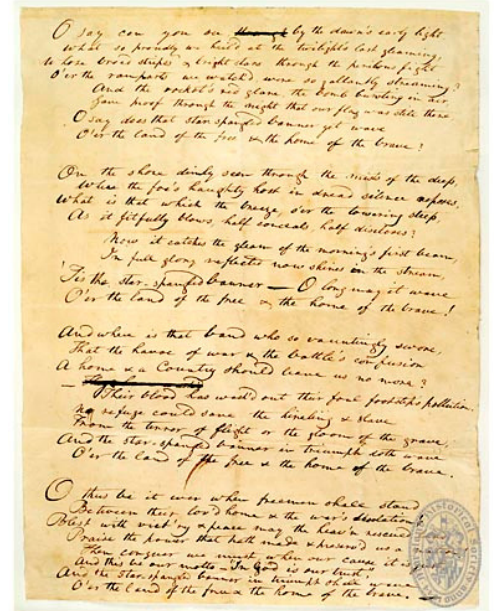 O say can you see ~~through~~ by the dawn's early light
What so proudly we hail'd at the twilight's last gleaming,
Whose broad stripes & bright stars through the perilous fight
O'er the ramparts we watch'd, were so gallantly streaming?
And the rocket's red glare, the bomb bursting in air,
Gave proof through the night that our flag was still there,
O say does that star-spangled banner yet wave
O'er the land of the free & the home of the brave?
On the shore dimly seen through the mists of the deep,
Where the foe's haughty host in dread silence reposes,
What is that which the breeze, o'er the towering steep,
As it fitfully blows, half conceals, half discloses?
Now it catches the gleam of the morning's first beam,
In full glory reflected now shines in the stream,
'Tis the star-spangled banner — O long may it wave
O'er the land of the free & the home of the brave!
And where is that band who so vauntingly swore,
That the havoc of war & the battle's confusion
A home & a Country should leave us no more?
—
Their blood has wash'd out their foul footstep's pollution.
No refuge could save the hireling & slave
From the terror of flight or the gloom of the grave,
And the star-spangled banner in triumph doth wave
O'er the land of the free & the home of the brave.
O thus be it ever when freemen shall stand
Between their lov'd home & the war's desolation!
Blest with vict'ry & peace may the heav'n rescued land
Praise the power that hath made & preserv'd us a nation!
Then conquer we must, when our cause it is just,
And this be our motto — In God is our trust,
And the star-spangled banner in triumph shall wave
O'er the land of the free & the home of the brave. —